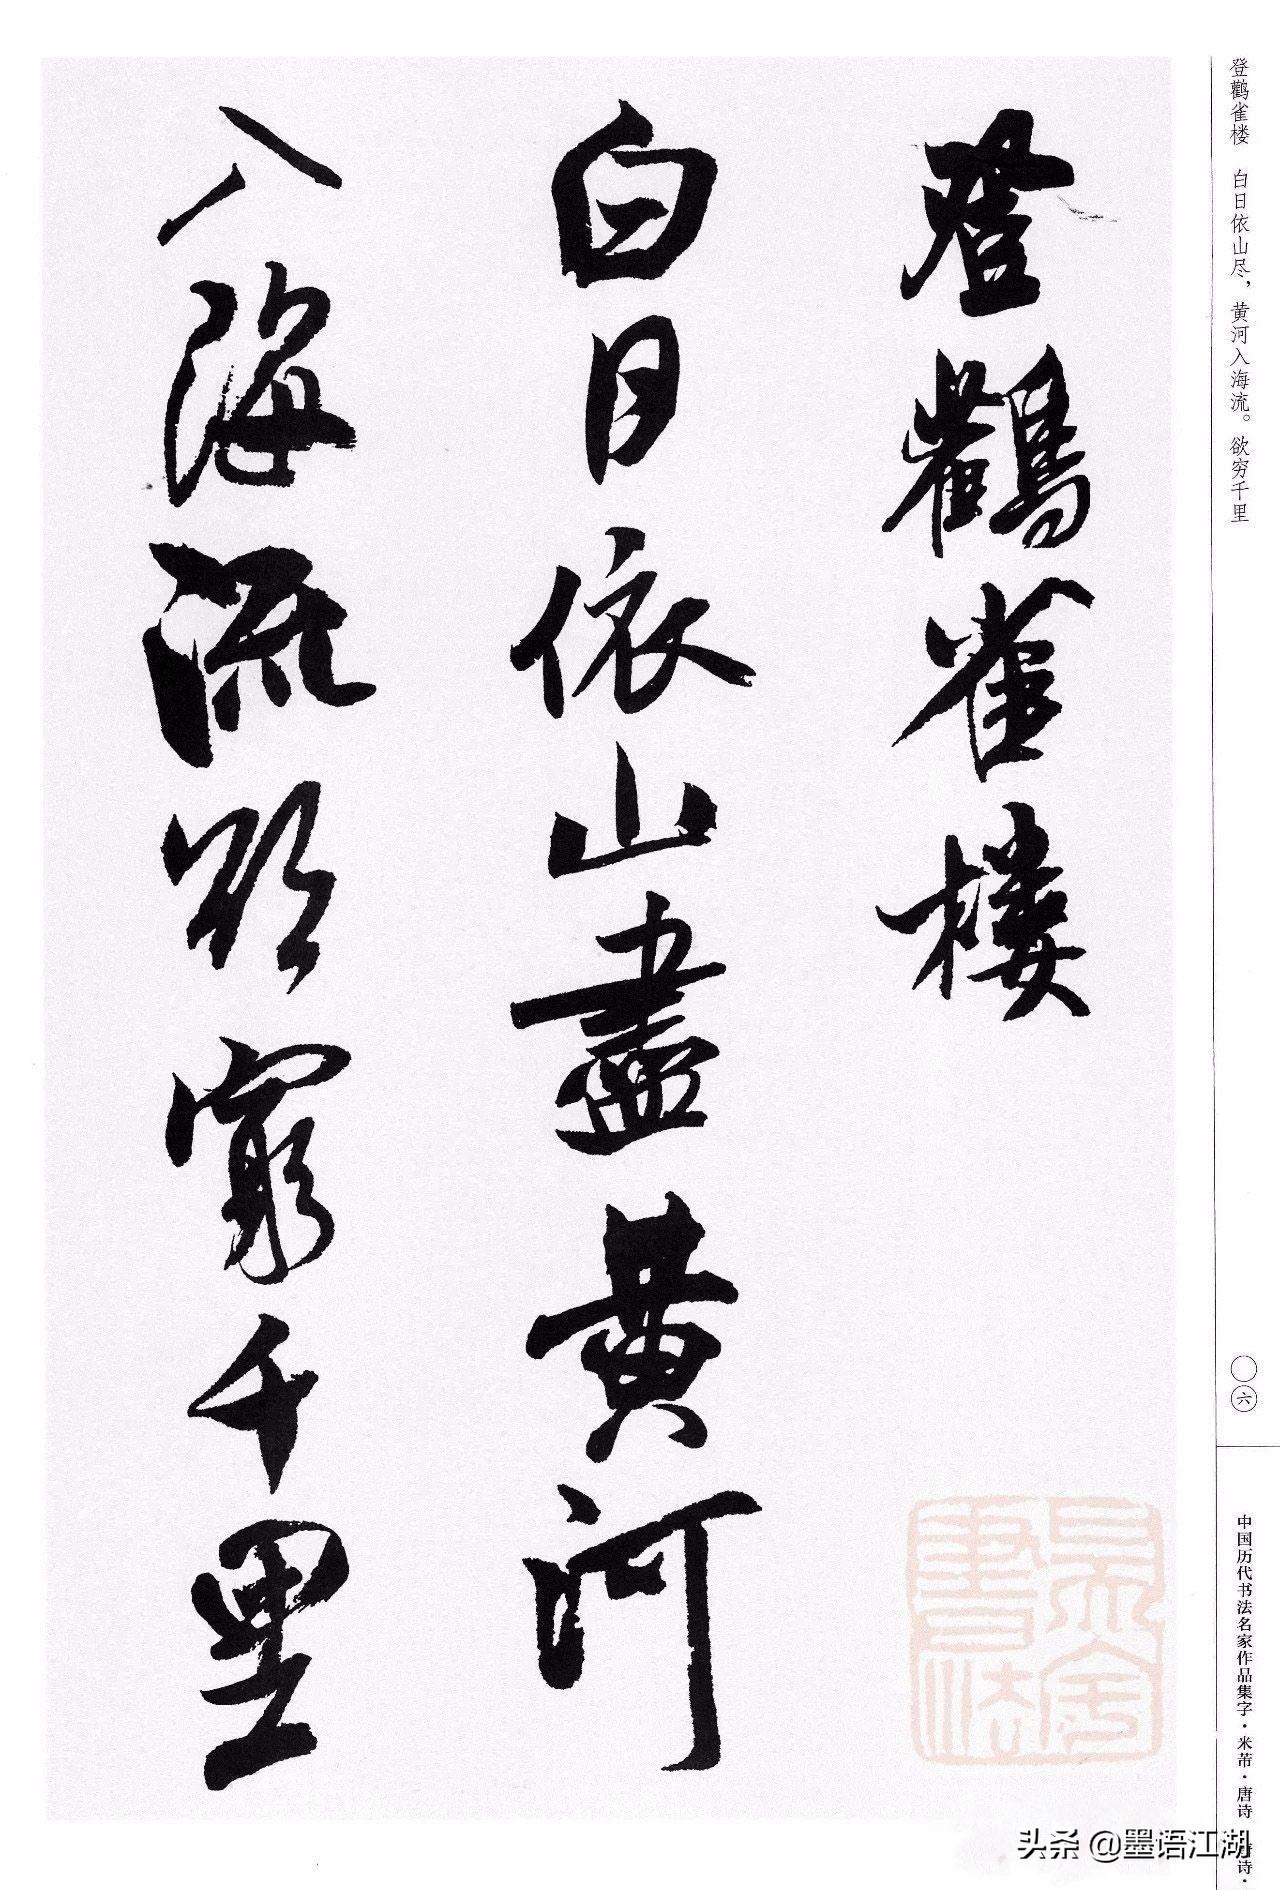 登鸛雀樓
白日依山盡黄河
入海流欲窮千里
登鹳雀楼 白日依山尽，黄河入海流。欲穷千里
〇六
中国历代书法名家作品集字·米芾·唐诗
書法
头条 @墨语江湖